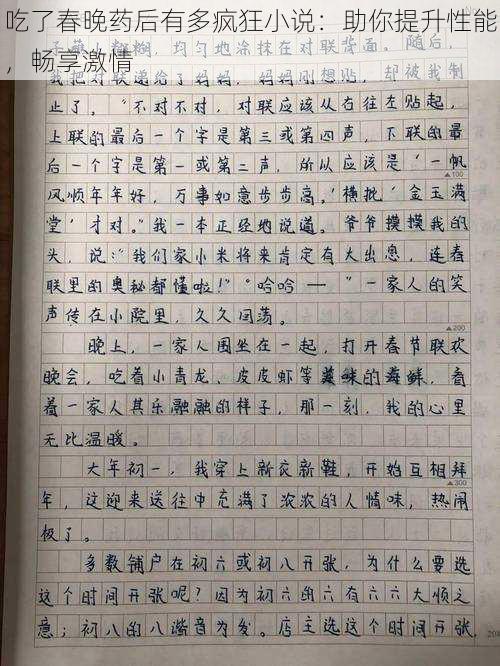 吃了春晚药后有多疯狂小说：助你提升性能
，畅享激情
均匀地涂抹在对联背面。随后，
我把对联递给了妈妈，妈妈刚想贴，却被我制
止了。“不对不对，对联应该从右往左贴起，
上联的最后一个字是第三或第四声，下联的最
后一个字是第一或第二声，所以应该是‘一帆
风顺年年好，万事如意步步高。’横批‘金玉满
堂’才对。”我一本正经地说道。爷爷摸摸我的
头，说：“我们家小米将来肯定有大出息，连春
联里的奥秘都懂啦！”“哈哈——”一家人的笑
声传在小院里，久久回荡。
晚上，一家人围坐在一起，打开春节联欢
晚会，吃着小青龙、皮皮虾等美味的海鲜，看
着一家人其乐融融的样子，那一刻，我的心里
无比温暖。
大年初一，我穿上新衣新鞋，开始互相拜
年，这迎来送往中充满了浓浓的人情味，热闹
极了。
多数铺户在初六或初八开张，为什么要选
这个时间开张呢？因为初六的六有六六大顺之
意；初八的八谐音为发。店主选这个时间开张，
▲100
▲200
▲300